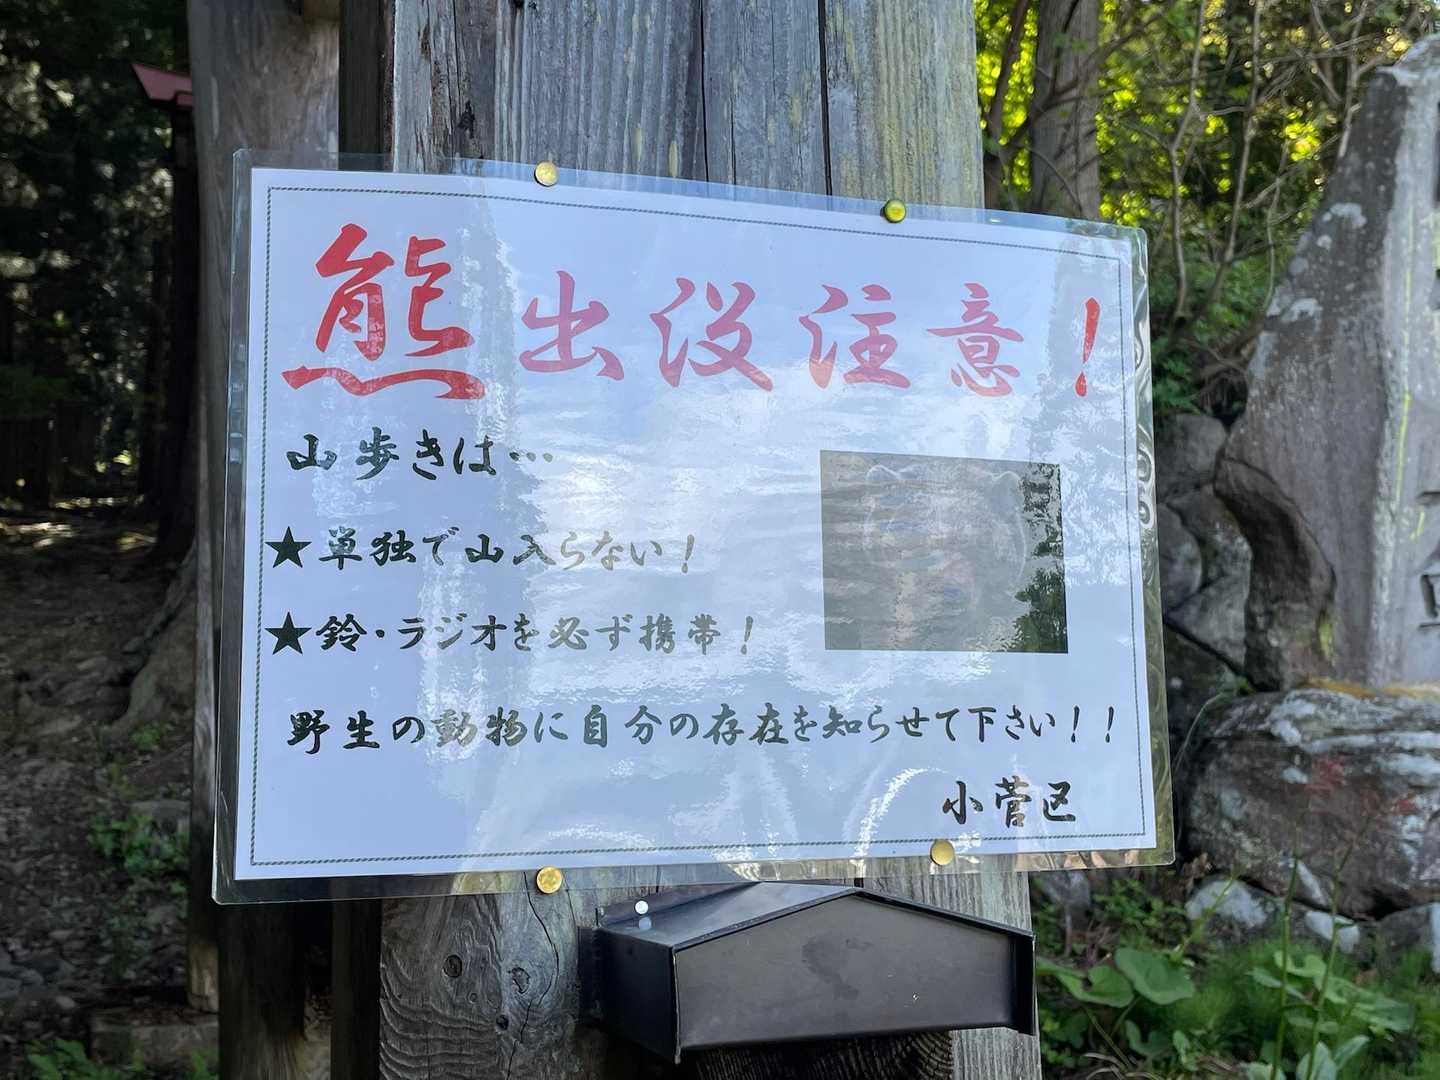 熊出没注意!
山歩きは…
★単独で山入らない!
★鈴・ラジオを必ず携帯!
野生の動物に自分の存在を知らせて下さい!!
小菅区